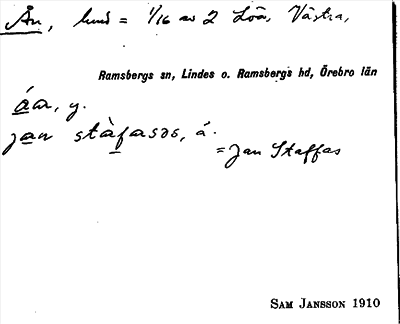 Ån, hmd = 1/16 av 2 Löa, Västra,
Ramsbergs sn, Lindes o. Ramsbergs hd, Örebro län
åa, y.
jan stàfasəs, å.
= Jan Staffas
SAM JANSSON 1910